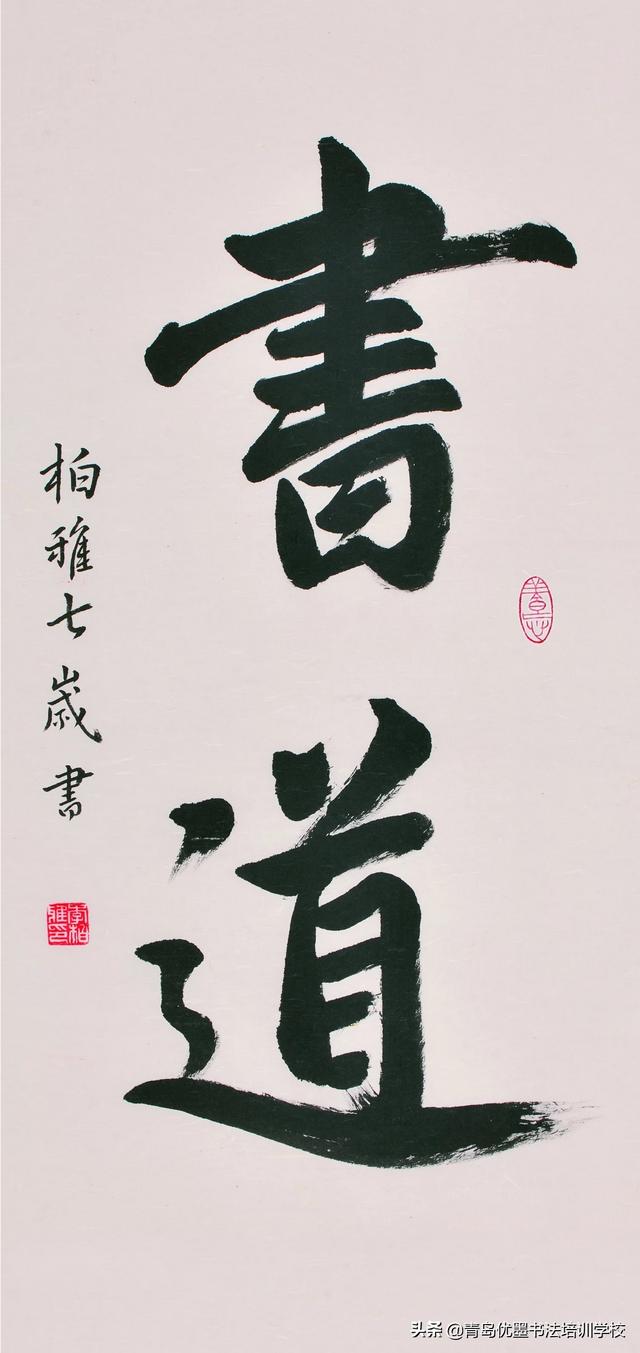 書道
柏雅七歲書
李柏雅印
头条 @青岛优墨书法培训学校